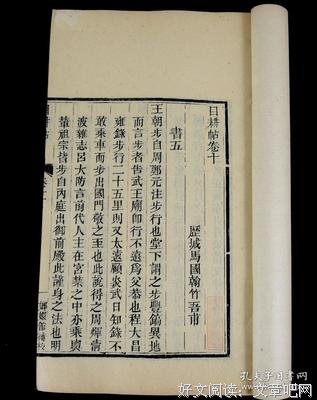 目耕帖卷十
歷城馬國翰竹吾甫
書五
王朝步自周鄭元注步行也堂下謂之步豐鎬異地
而言步者告武王廟卽行不遠爲父恭也程大昌
雍錄步行二十五里則又太遠顧炎武日知錄不
敢乘車而步出國門敬之至也此說得之周煇清
波雜志呂大防言前代人主在宮禁之中亦乘輿
輦祖宗皆步自內庭出御前殿此謹身之法也明
嫏嬛館補校
孔夫子旧书网
好文阅读：文章吧网